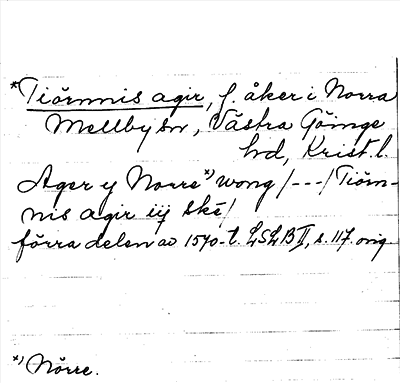 *Tiörnnis agir, f. åker i Norra
Mellby sn, Västra Göinge
hd, Krist. l.
Ager y Norre*) wong /---/ Tiörn-
nis agir iij skē/
förra delen av 1570-t. LSLB II, s. 117. orig.
*) Nörre.